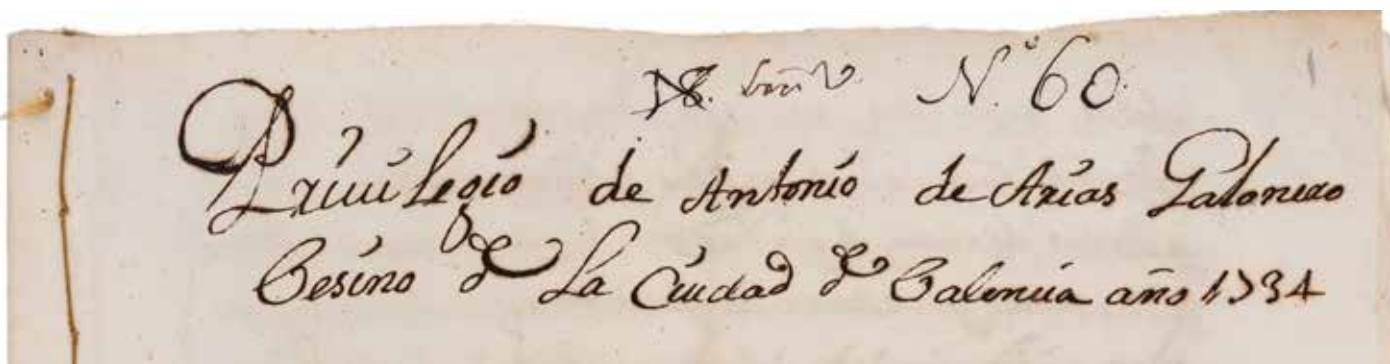 Nº 60
Priuilegio de Antonio de Arias Galonero
Besino de La Ciudad de Balencia año 1734